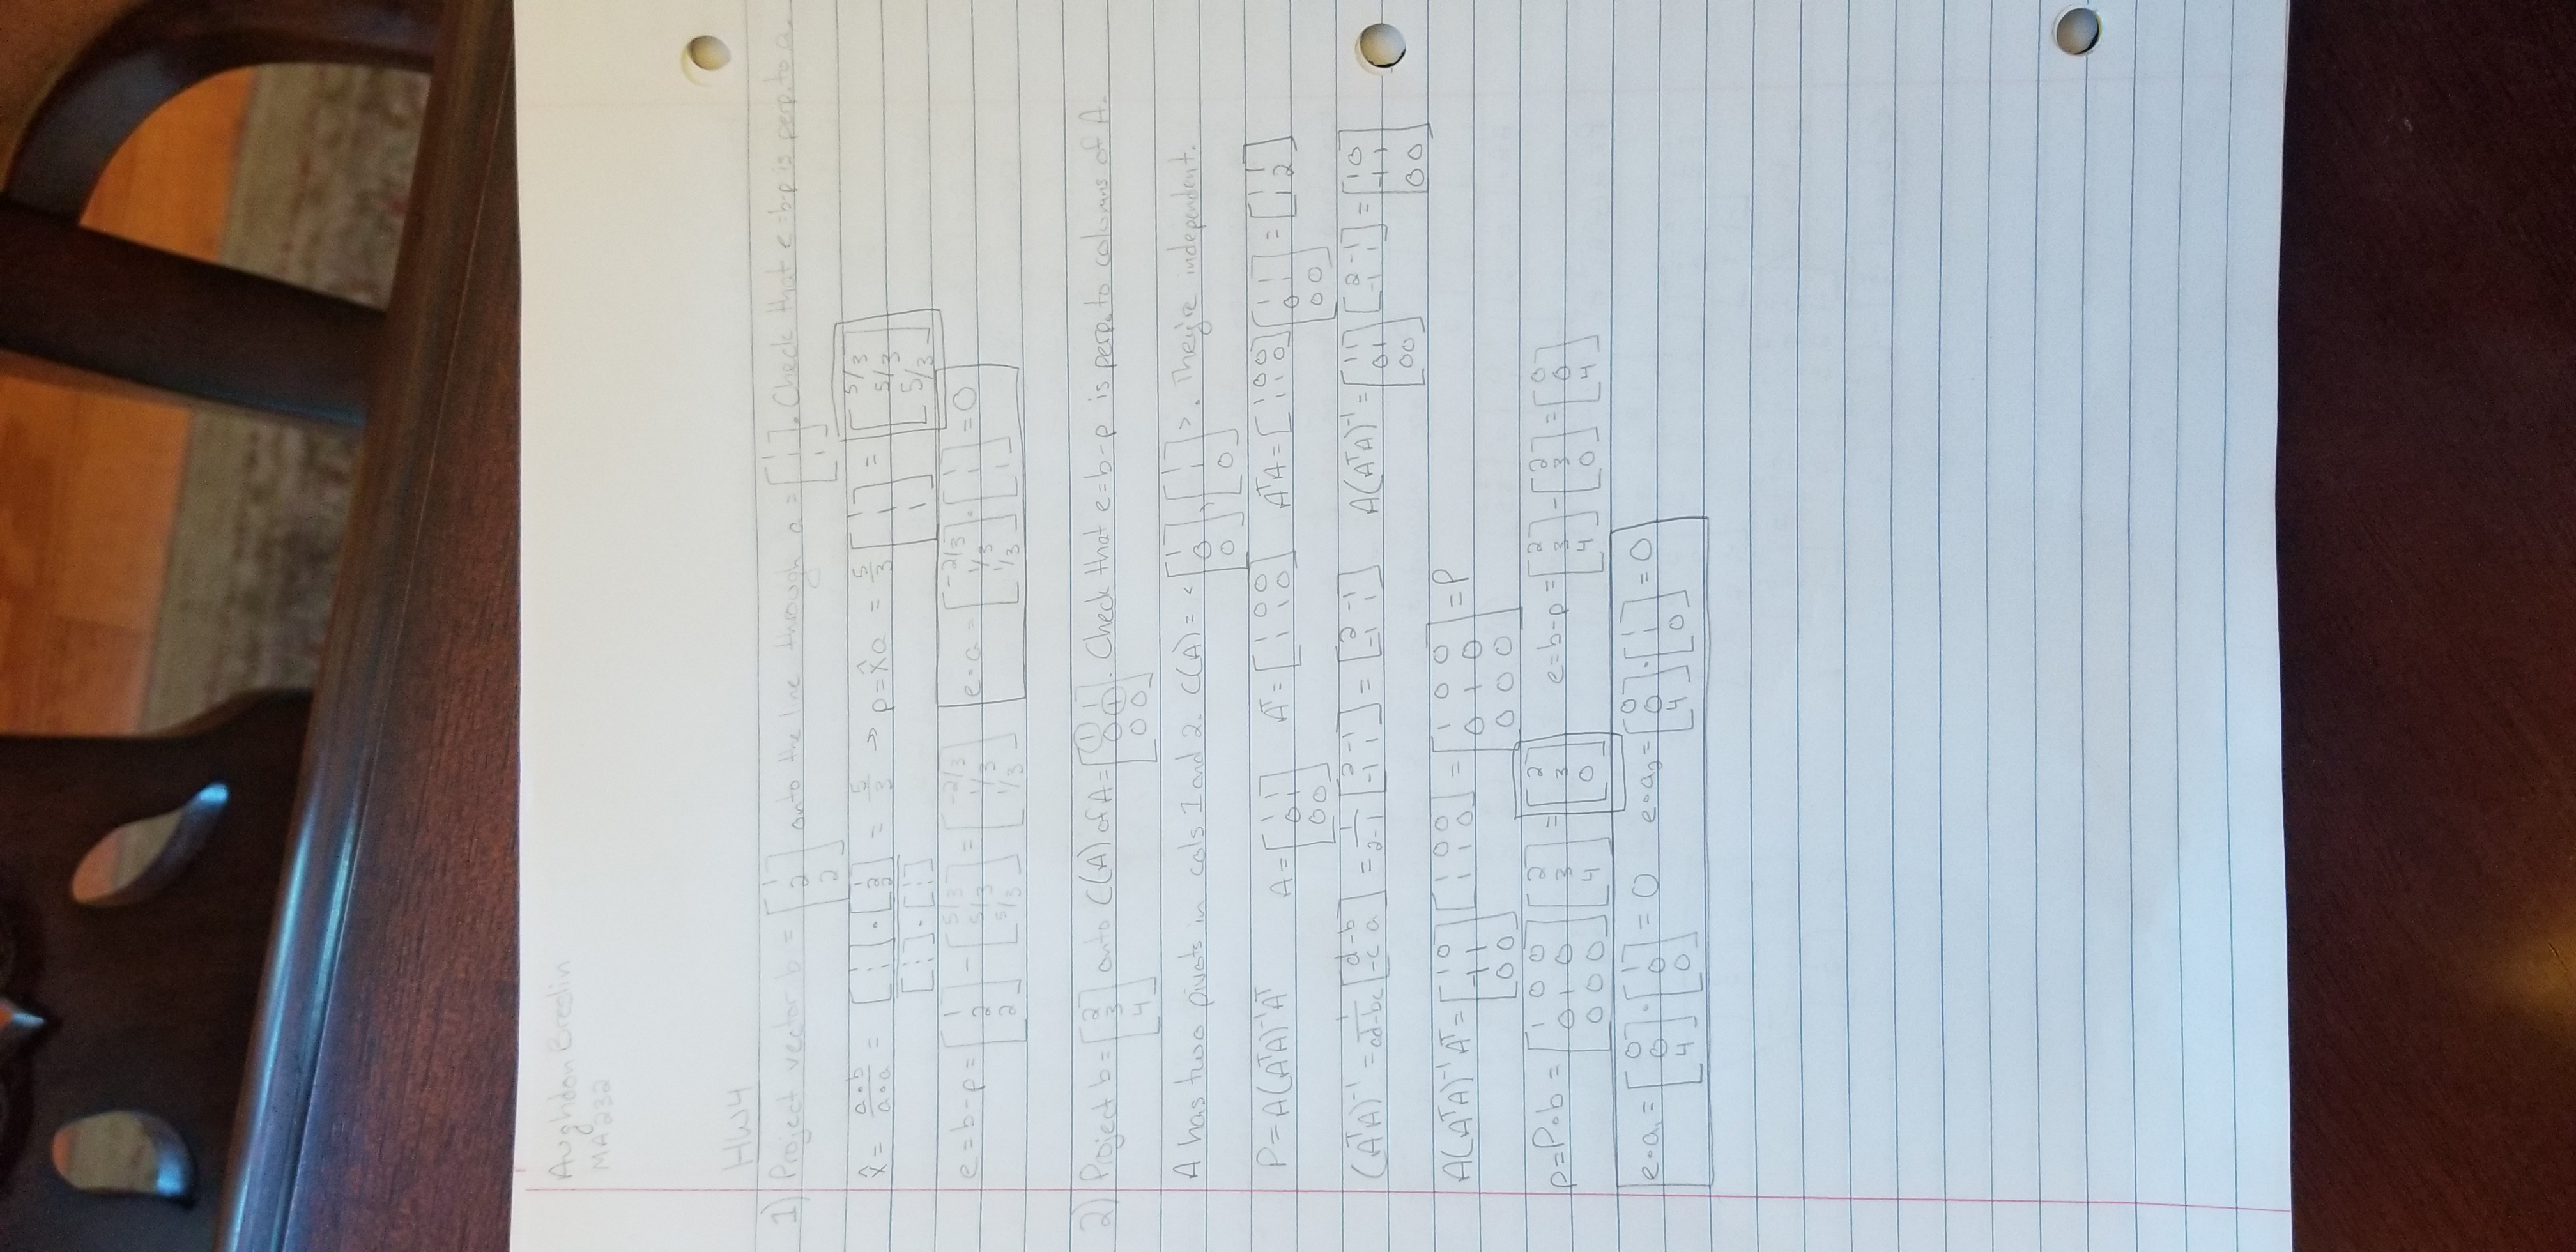 Aughdon Breslin
MA 232
HW4
1) Project vector b = [1 2 2] onto the line through a = [1 1 1]. Check that e=b-p is perp. to a.
x̂ = a•b / a•a = [1 1 1]•[1 2 2] / [1 1 1]•[1 1 1] = 5/3 → p=x̂a = 5/3 [1 1 1] = [5/3 5/3 5/3]
e=b-p= [1 2 2] - [5/3 5/3 5/3] = [-2/3 1/3 1/3] e•a = [-2/3 1/3 1/3]•[1 1 1] = 0
2) Project b= [2 3 4] onto C(A) of A= [1 1; 0 1; 0 0]. Check that e=b-p is perp. to columns of A.
A has two pivots in cols 1 and 2. C(A) = <[1 0 0], [1 1 0]>. They're independent.
P=A(AᵀA)⁻¹Aᵀ A= [1 1; 0 1; 0 0] Aᵀ= [1 0 0; 1 1 0] AᵀA= [1 0 0; 1 1 0] [1 1; 0 1; 0 0] = [1 1; 1 2]
(AᵀA)⁻¹ = 1/ad-bc [d -b; -c a] = 1/2-1 [2 -1; -1 1] = [2 -1; -1 1] A(AᵀA)⁻¹= [1 1; 0 1; 0 0] [2 -1; -1 1] = [1 0; -1 1; 0 0]
A(AᵀA)⁻¹Aᵀ= [1 0; -1 1; 0 0] [1 0 0; 1 1 0] = [1 0 0; 0 1 0; 0 0 0] = P
p=P•b = [1 0 0; 0 1 0; 0 0 0] [2 3 4] = [2 3 0] e=b-p = [2 3 4] - [2 3 0] = [0 0 4]
e•a₁ = [0 0 4]•[1 0 0] = 0 e•a₂ = [0 0 4]•[1 1 0] = 0